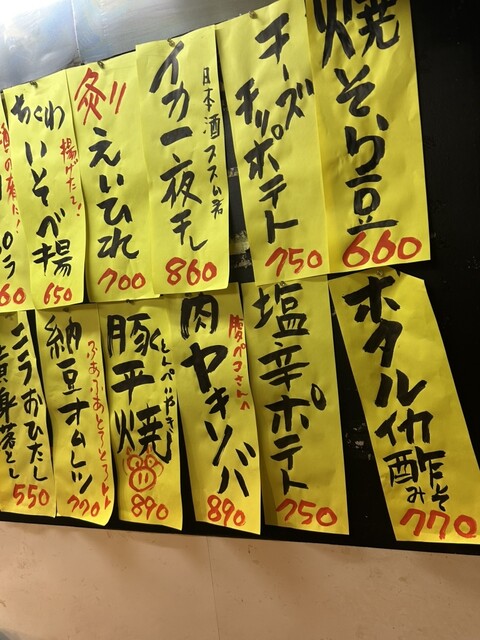 焼そら豆
660
チーズ
チリポテト
750
日本酒ススム君
イカ一夜干し
860
炙り
えいひれ
700
揚げたて!
ちくわ
いそべ揚
650
60
ホタルイカ
酢みそ
770
塩辛ポテト
750
腹ペコさんへ
肉ヤキソバ
890
とんぺいやき
豚平焼
890
納豆オムレツ
770
おひたし
黄身落とし
550